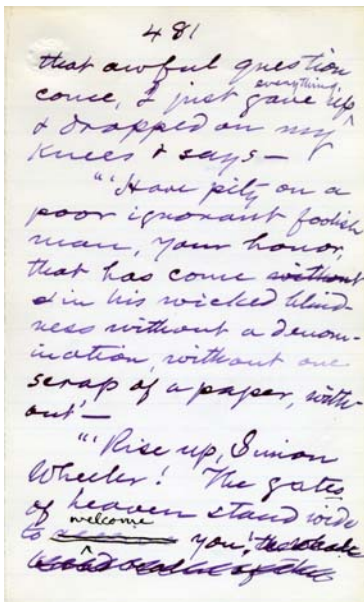 481
that awful question
come, I just gave everything up
& dropped on my
knees & says—
"'Have pity on a
poor ignorant foolish
man, your honor,
that has come without
in his wicked blind-
ness without a denom-
ination, without one
scrap of a paper, with-
out'—
"'Rise up, Simon
Wheeler! The gates
of heaven stand wide
to welcome you!